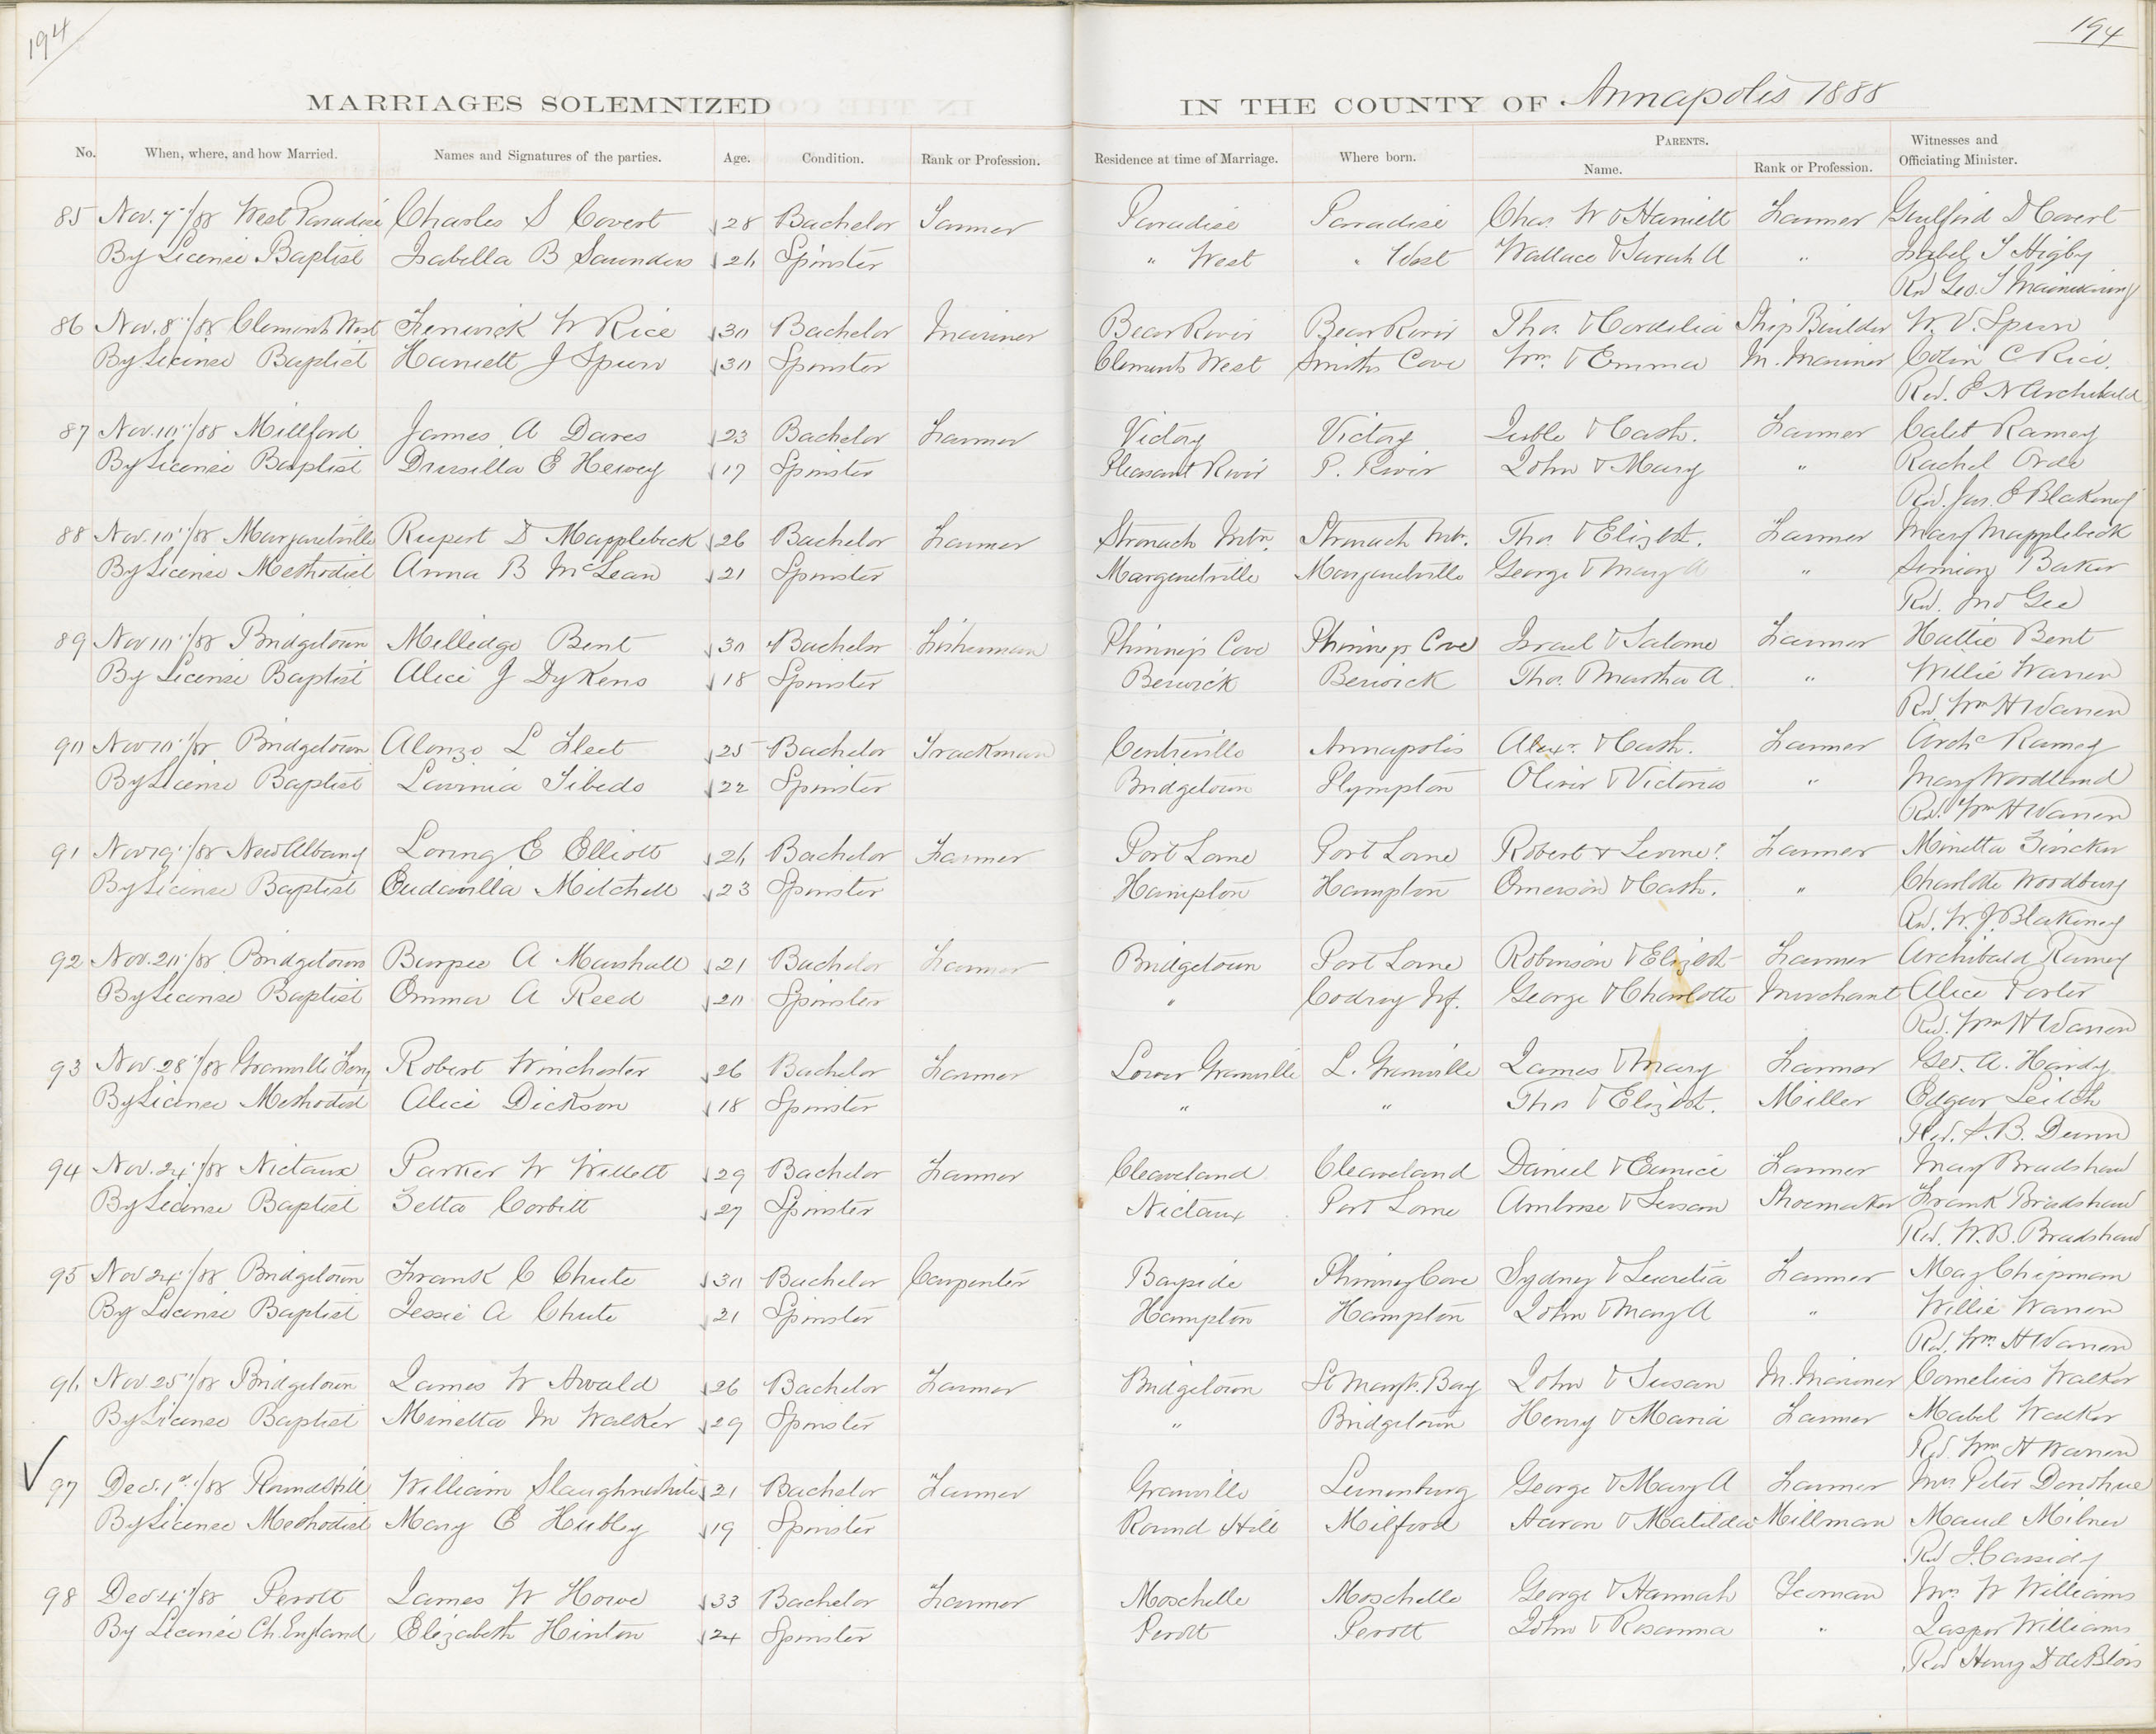 194
194
MARRIAGES SOLEMNIZED IN THE COUNTY OF Annapolis 1888
No. When, where, and how Married. Names and Signatures of the parties. Age. Condition. Rank or Profession. Residence at time of Marriage. Where born. PARENTS. Name. Rank or Profession. Witnesses and Officiating Minister.
85 Nov. 7"/88 West Paradise Charles S Covert 28 Bachelor Farmer Paradise Paradise Chas. W & Harriett Farmer Guilford D Covert
By License Baptist Isabella B Saunders 26 Spinster " West " West Wallace & Sarah A " Isabel S Higby
Rev Geo. S
86 Nov. 8"/88 Clements West Fenwick W Rice 30 Bachelor Mariner Bear River Bear River Thos. & Cordelia Ship Builder W. V. Spurr
By License Baptist Harriett J Spurr 30 Spinster Clements West Smiths Cove Wm. & Emma M. Mariner Colin C Rice.
Rev. E N Archibald
87 Nov. 10"/88 Millford James A Dares 23 Bachelor Farmer Victory Victory & Cath. Farmer Caleb Ramey
By License Baptist Drusilla E Hervey 17 Spinster Pleasant River P. River John & Mary " Rachel Orde
Rev. Jas. E Blakeney
88 Nov. 10"/88 Margaretville Rupert D Mapplebeck 26 Bachelor Farmer Stronach Mtn. Stronach Mtn. Thos. & Elizbt. Farmer Mary Mapplebeck
By License Methodist Anna B McLean 21 Spinster Margaretville Margaretville George & Mary A " Simion Baker
Rev. Jno Gee
89 Nov 10"/88 Bridgetown Milledge Bent 30 Bachelor Fisherman Phinneys Cove Phinneys Cove Israel & Salome Farmer Hattie Bent
By License Baptist Alice J Dykens 18 Spinster Berwick Berwick Thos. & Martha A. " Willie Warren
Rev. Wm H Warren
90 Nov 10"/88 Bridgetown Alonzo L Fleet 25 Bachelor Trackman Centreville Annapolis Alexr. & Cath. Farmer Archd Ramey
By License Baptist Lavinia Tibedo 22 Spinster Bridgetown Plympton Oliver & Victoria " Mary Woodland
Rev. Wm H Warren
91 Nov 19"/88 New Albany Loring E Elliott 26 Bachelor Farmer Port Lorne Port Lorne Robert & Farmer Minetta Zwicker
By License Baptist Eudavilla Mitchell 23 Spinster Hampton Hampton Emerson & Cath. " Charlotte Woodbury
Rev. W. J. Blakeney
92 Nov. 20"/88 Bridgetown Burpee A Marshall 21 Bachelor Farmer Bridgetown Port Lorne Robinson & Elizbth Farmer Archibald Ramey
By License Baptist Emma A Reed 20 Spinster " Codroy Nf. George & Charlotte Merchant Alice Porter
Rev. Wm H Warren
93 Nov. 28"/88 Granville Ferry Robert Winchester 26 Bachelor Farmer Lower Granville L. Granville James & Mary Farmer Geo. A. Hardy
By License Methodist Alice Dickson 18 Spinster " " Thos & Elizbt. Miller Edgar Leitch
Rev. F. B. Dunn
94 Nov. 24"/88 Nictaux Parker W Willett 29 Bachelor Farmer Cleaveland Cleaveland Daniel & Eunice Farmer May Bradshaw
By License Baptist Zetta Corbitt 27 Spinster Nictaux Port Lorne Ambrose & Susan Shoemaker Frank Bradshaw
Rev. W. B. Bradshaw
95 Nov 24"/88 Bridgetown Frank C Chute 30 Bachelor Carpenter Bayside Phinney Cove Sydney & Lucretia Farmer May Chipman
By License Baptist Jessie A Chute 21 Spinster Hampton Hampton John & Mary A " Willie Warren
Rev. Wm. H Warren
96 Nov 25"/88 Bridgetown James W Awald 26 Bachelor Farmer Bridgetown St Margts. Bay John & Susan M. Mariner Cornelius Walker
By License Baptist Minetta M Walker 29 Spinster " Bridgetown Henry & Maria Farmer Mabel Walker
Rev. Wm H Warren
97 Dec. 1st/88 Round Hill William Slaughnwhite 21 Bachelor Farmer Granville Lunenburg George & Mary A Farmer Mrs Peter Donohue
By License Methodist Mary E Hubley 19 Spinster Round Hill Milford Aaron & Matilda Millman Maud Milner
Rev J Cassidy
98 Dec 4"/88 Perott James W Howe 33 Bachelor Farmer Moschelle Moschelle George & Hannah Yeoman Mrs W Williams
By License Ch. England Elizabeth Hinton 24 Spinster Perott Perott John & Rosanna " Jasper Williams
Rev Henry D de Blois